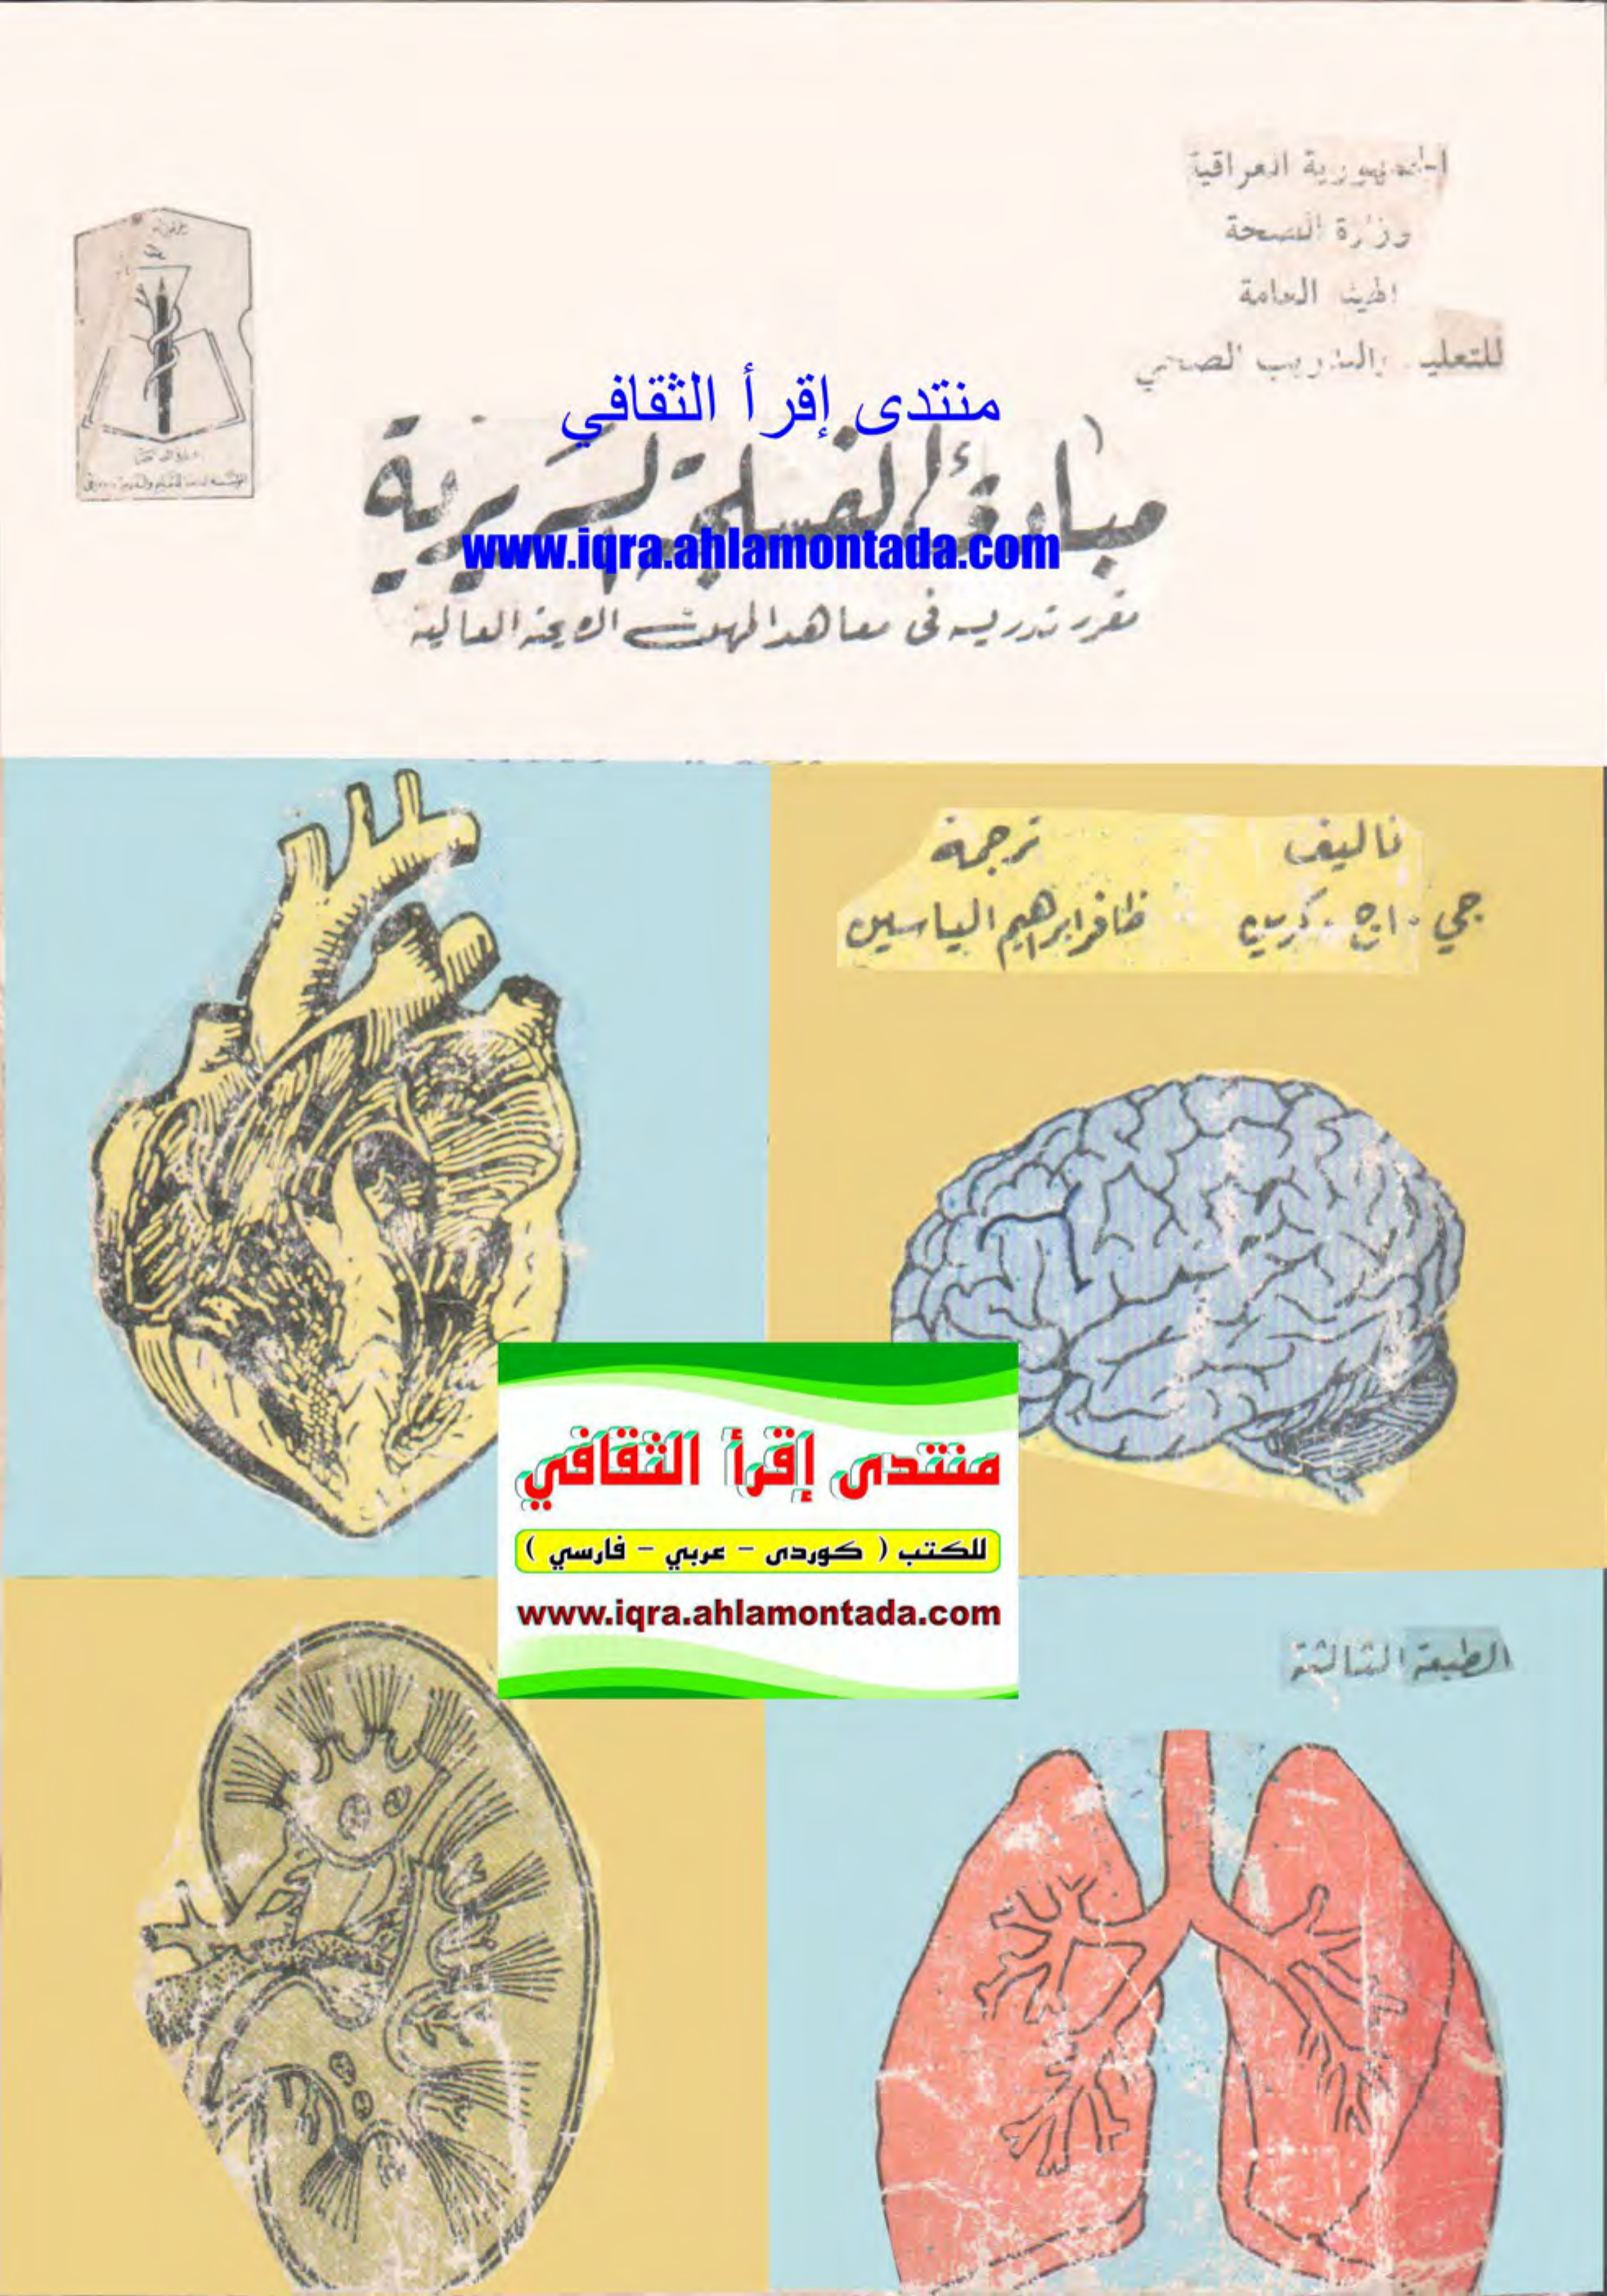 الجمهورية العراقية
وزارة الصحة
الهيئة العامة
للتعليم والتدريب الصحي
منتدى إقرأ الثقافي
مبادئ الفسلجة السريرية
www.iqra.ahlamontada.com
مقرر تدريسه في معاهد المهن الصحية العالية
تأليف
ترجمة
جي . اج . كرين
ظافر ابراهيم الياسين
منتدى إقرأ الثقافي
للكتب ( كوردى - عربي - فارسي )
www.iqra.ahlamontada.com
الطبعة الثالثة